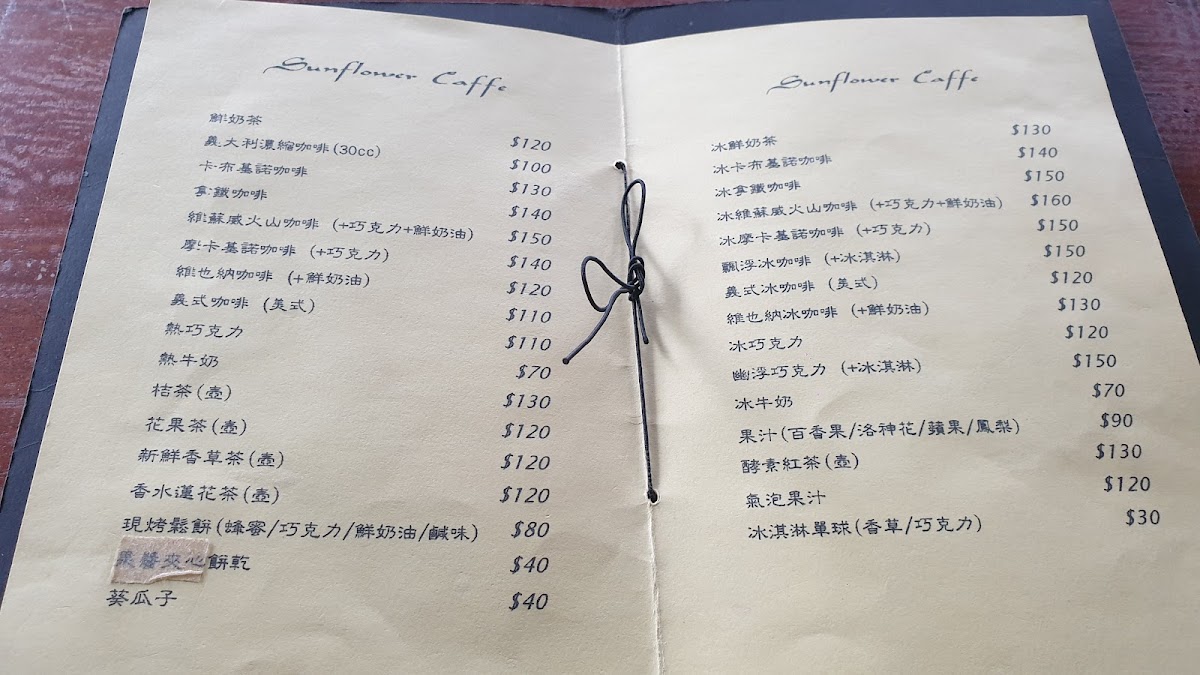 Sunflower Caffe
鮮奶茶 $120
義大利濃縮咖啡(30cc) $100
卡布基諾咖啡 $130
拿鐵咖啡 $140
維蘇威火山咖啡 (+巧克力+鮮奶油) $150
摩卡基諾咖啡 (+巧克力) $140
維也納咖啡 (+鮮奶油) $120
義式咖啡 (美式) $110
熱巧克力 $110
熱牛奶 $70
桔茶(壺) $130
花果茶(壺) $120
新鮮香草茶(壺) $120
香水蓮花茶(壺) $120
現烤鬆餅(蜂蜜/巧克力/鮮奶油/鹹味) $80
果醬夾心餅乾 $40
葵瓜子 $40
Sunflower Caffe
冰鮮奶茶 $130
冰卡布基諾咖啡 $140
冰拿鐵咖啡 $150
冰維蘇威火山咖啡 (+巧克力+鮮奶油) $160
冰摩卡基諾咖啡 (+巧克力) $150
飄浮冰咖啡 (+冰淇淋) $150
義式冰咖啡 (美式) $120
維也納冰咖啡 (+鮮奶油) $130
冰巧克力 $120
幽浮巧克力 (+冰淇淋) $150
冰牛奶 $70
果汁(百香果/洛神花/蘋果/鳳梨) $90
酵素紅茶(壺) $130
氣泡果汁 $120
冰淇淋單球(香草/巧克力) $30